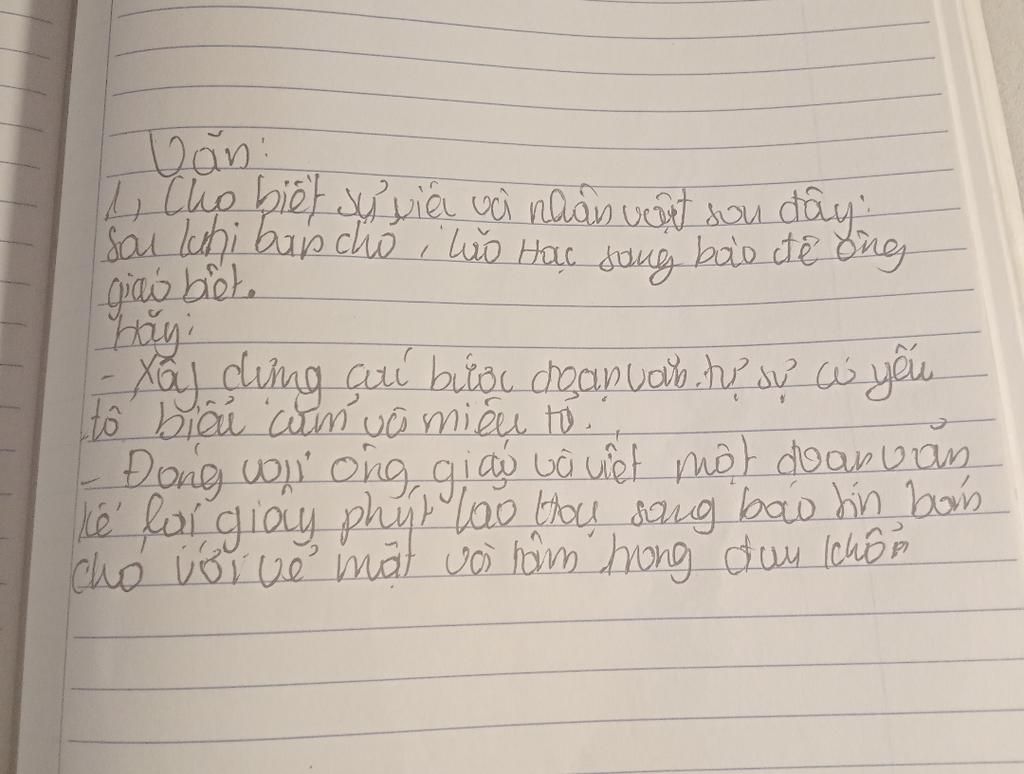 Văn:
1, Cho biết sự việc và nhân vật sau đây:
Sau khi bán chó, lão Hạc sang báo để ông
giáo biết.
Hãy:
- Xây dựng các bước đoạn văn tự sự có yếu
tố biểu cảm và miêu tả.
- Đóng vai ông giáo và viết một đoạn văn
kể lại giây phút lão Hạc sang báo tin bán
chó với vẻ mặt và tâm trạng đau khổ